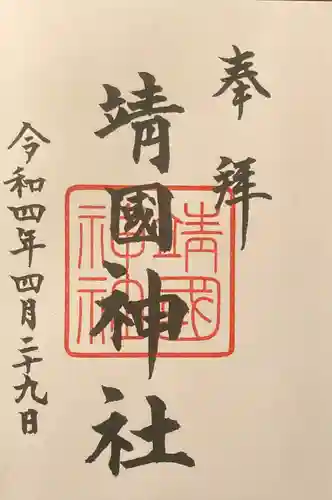 奉拝
靖國神社
靖國神社
令和四年四月二十九日